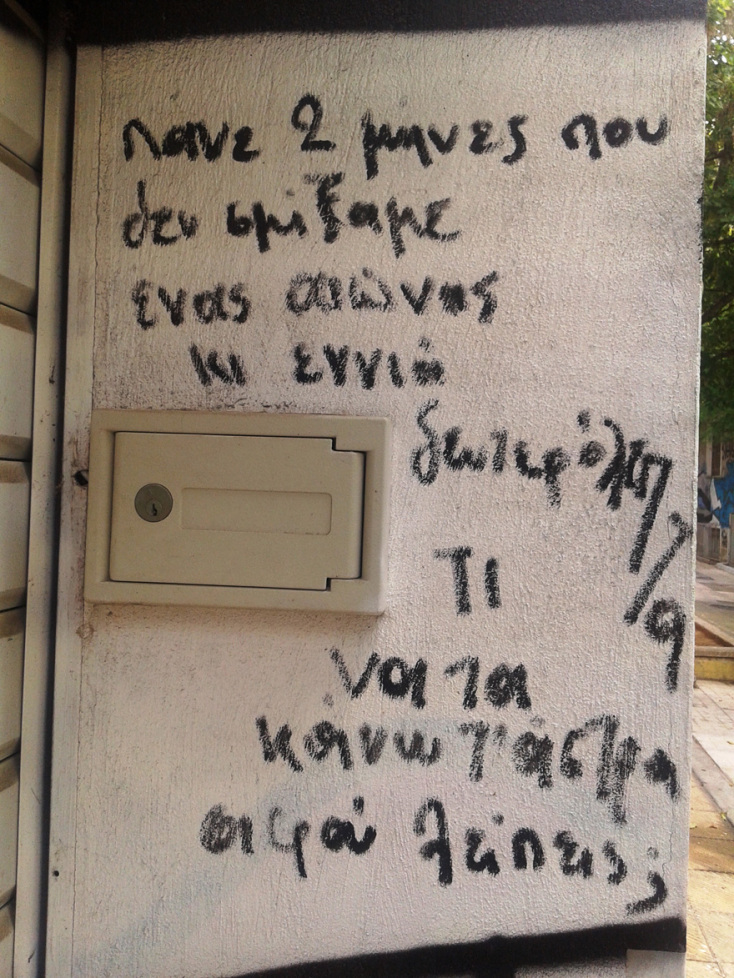 πανε 2 μηνες που
δεν σμίξαμε
ενας αιώνας
κι εννιά
δευτερόλεπ
7/9
ΤΙ
να τα
κάνω τ' άσμα
αφού λείπεις;